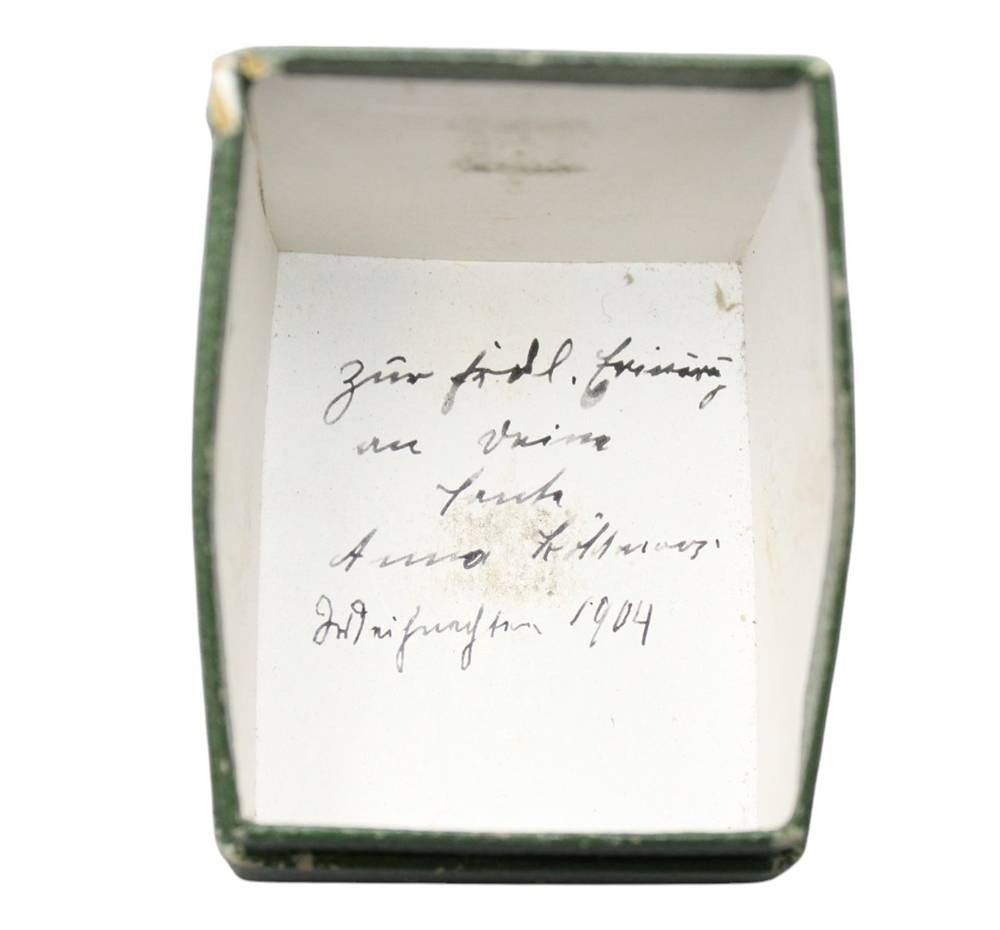 Zur frdl. Erinnerg
an Deine
Tante
Anna
Weihnachten 1904